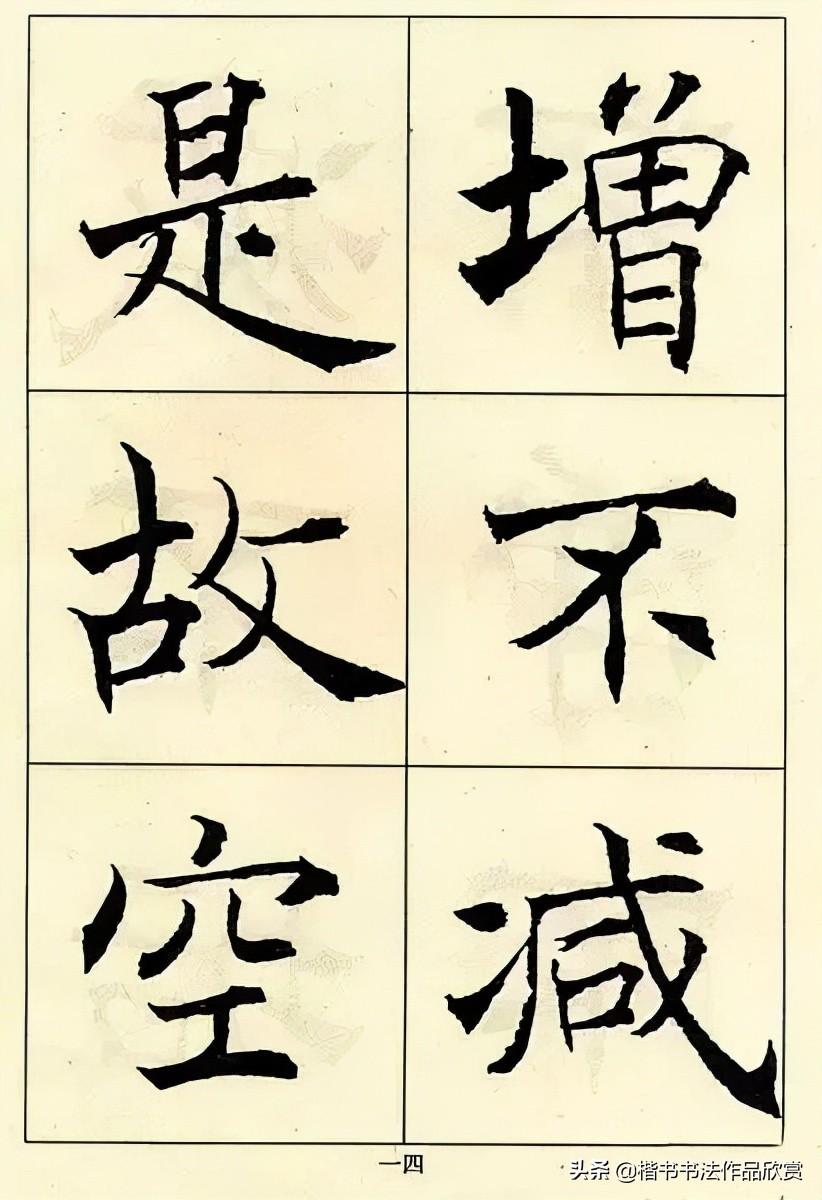 增不減
是故空
一四
头条 @楷书书法作品欣赏